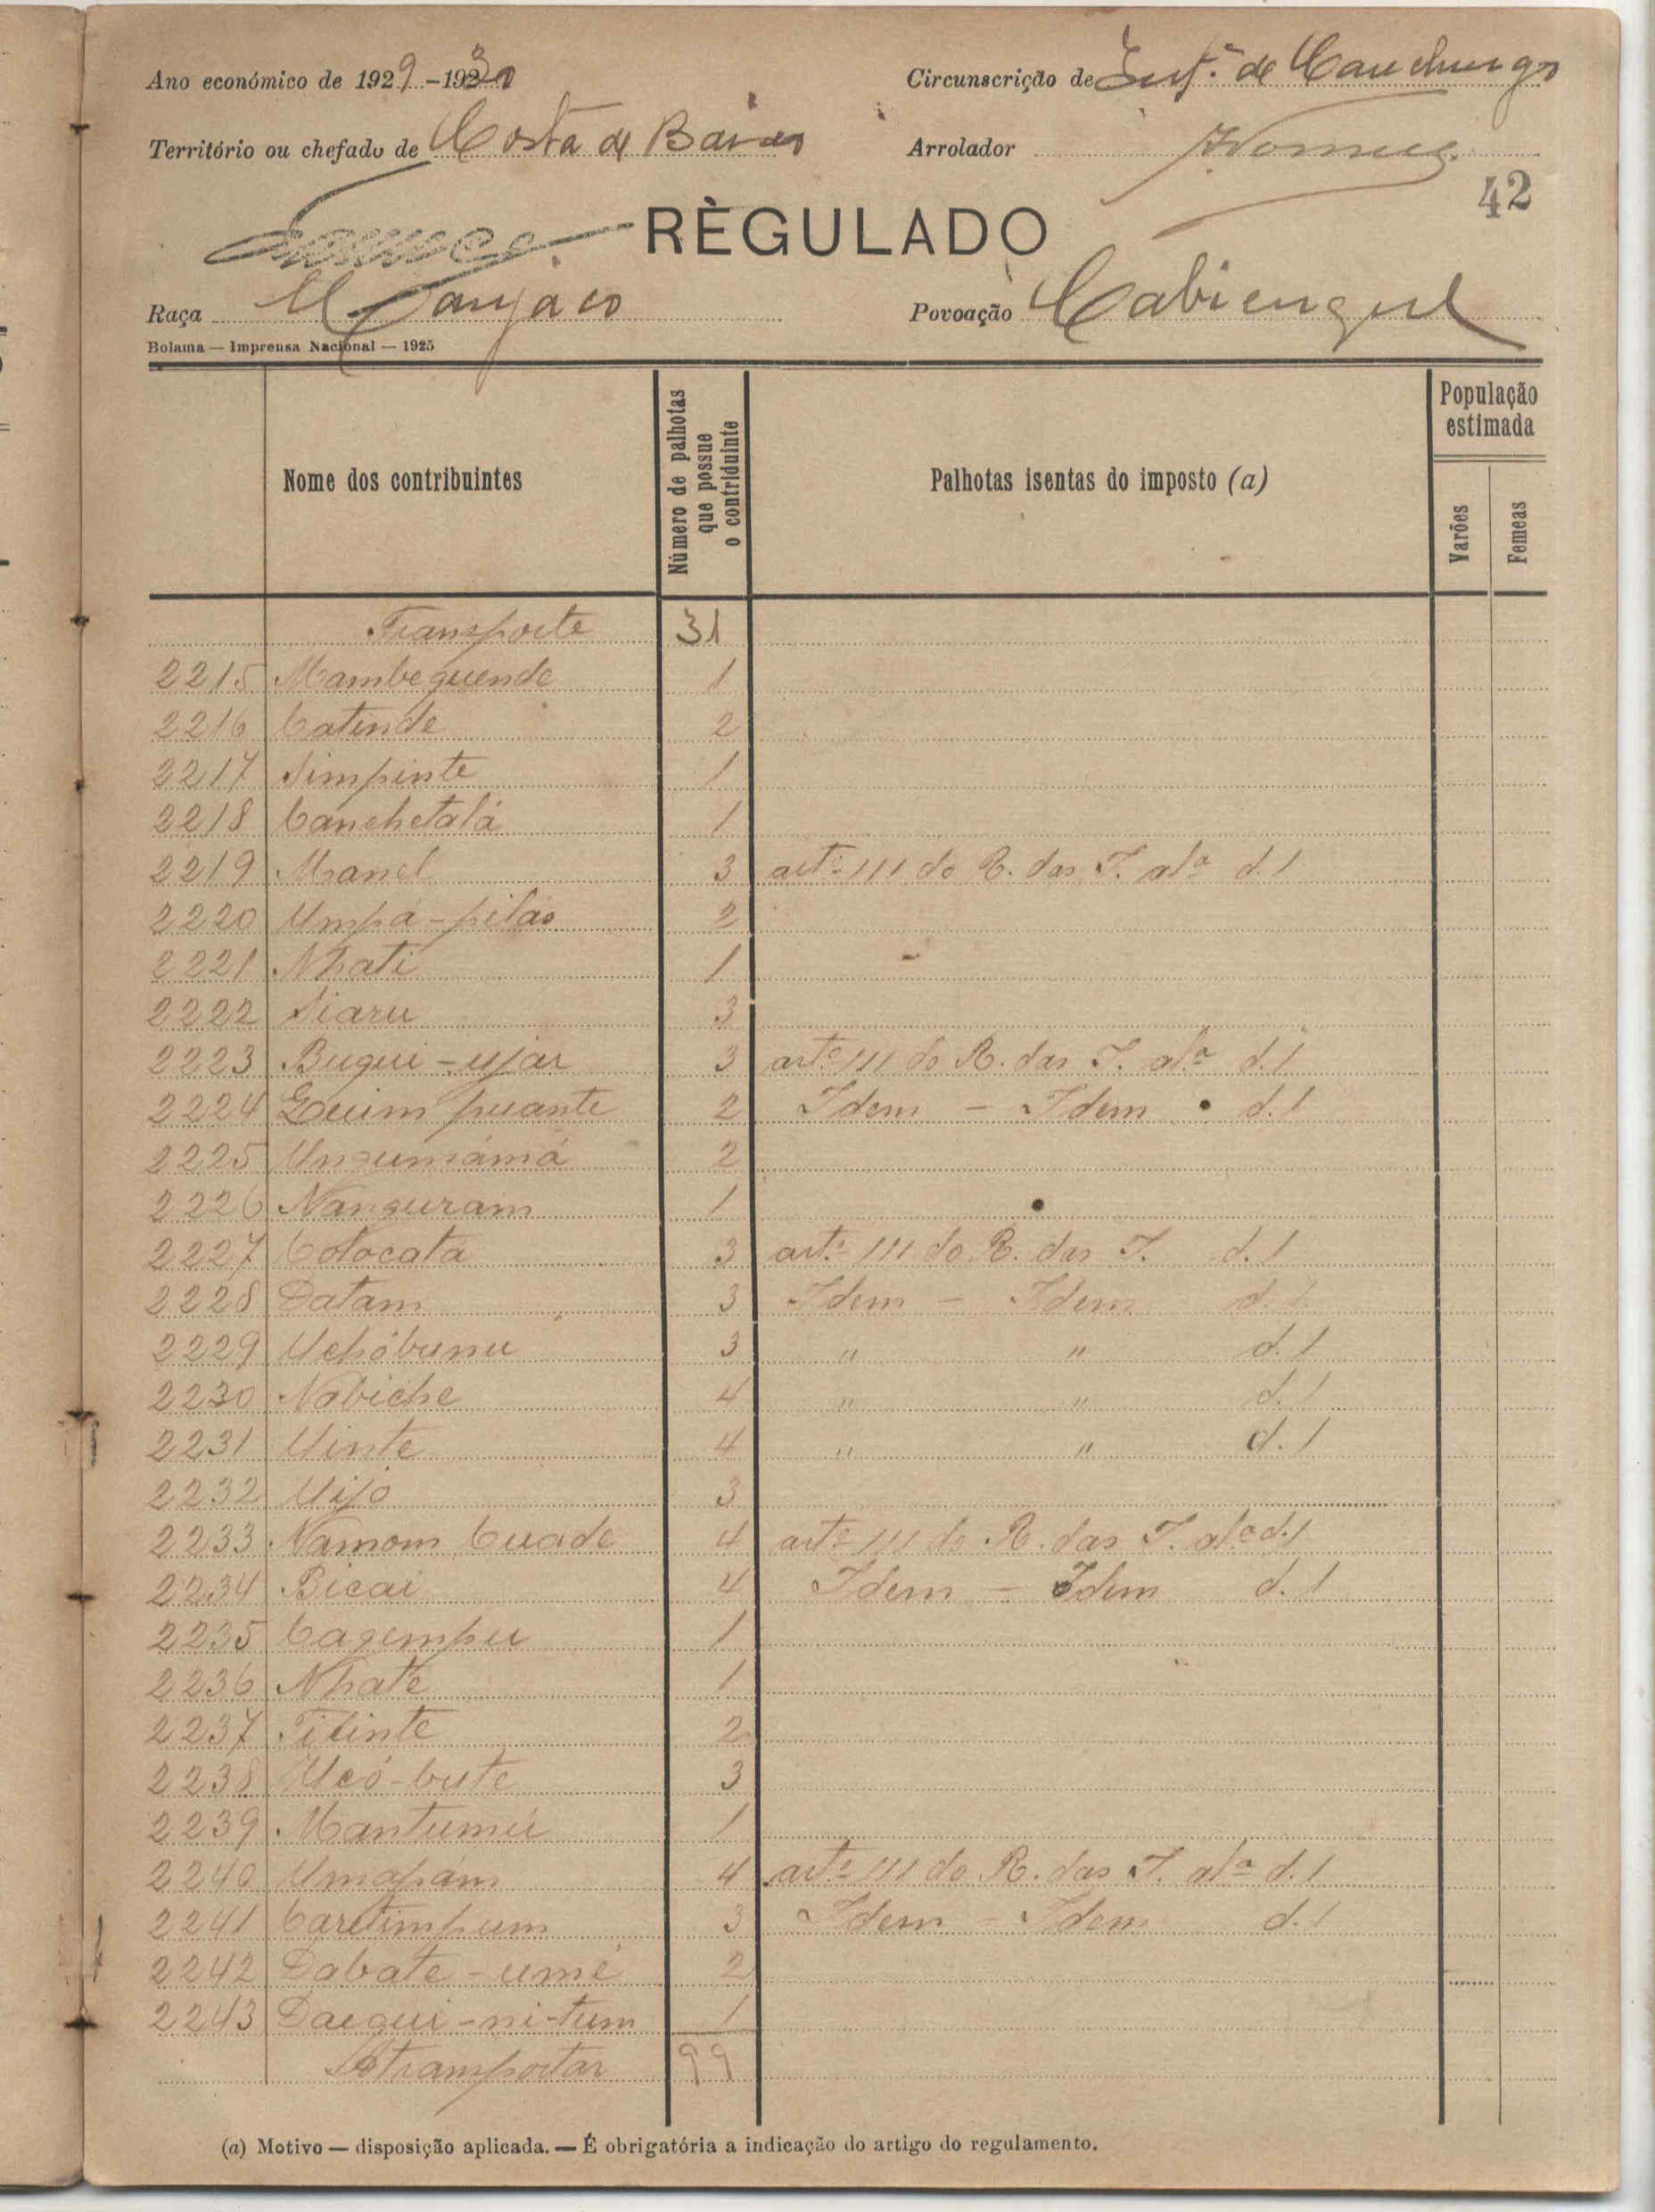 Ano económico de 1929-1930 Circunscrição de de Canchungo
Território ou chefado de Costa de Arrolador
42
RÈGULADO
Raça Manjaco Povoação Cabienguel
Bolama — Imprensa Nacional — 1925
Nome dos contribuintes Número de palhotas que possue o contriduinte Palhotas isentas do imposto (a) População estimada
Varões Femeas
Transporte 31
2215 Mambequende 1
2216 Catinde 2
2217 Simpinte 1
2218 Canchetalá 1
2219 Manel 3 artº 111 do R. das I. alª d. 1
2220 Umpá-pilás 2
2221 Nhati 1
2222 Siaru 3
2223 Buqui-ujar 3 artº 111 do R. das I. alª d. 1
2224 Quim puante 2 Idem - Idem d. 1
2225 2
2226 Nanguram 1
2227 Colocata 3 artº 111 do R. das I. d. 1
2228 Datam 3 Idem - Idem d. 1
2229 Uchóbunu 3 " " d. 1
2230 Nabiche 4 " " d. 1
2231 Uinte 4 " " d. 1
2232 Uijó 3
2233 Namom Cuade 4 artº 111 do R. das I. alª d. 1
2234 Bicai 4 Idem - Idem d. 1
2235 Cagempu 1
2236 Nhate 1
2237 2
2238 Ucó-bute 3
2239 Mantumú 1
2240 Umapám 4 artº 111 do R. das I. alª d. 1
2241 Caretimpum 3 Idem - Idem d. 1
2242 Dabate-umé 2
2243 Daequi-ni-tum 1
A transportar 99
(a) Motivo — disposição aplicada. — É obrigatória a indicação do artigo do regulamento.